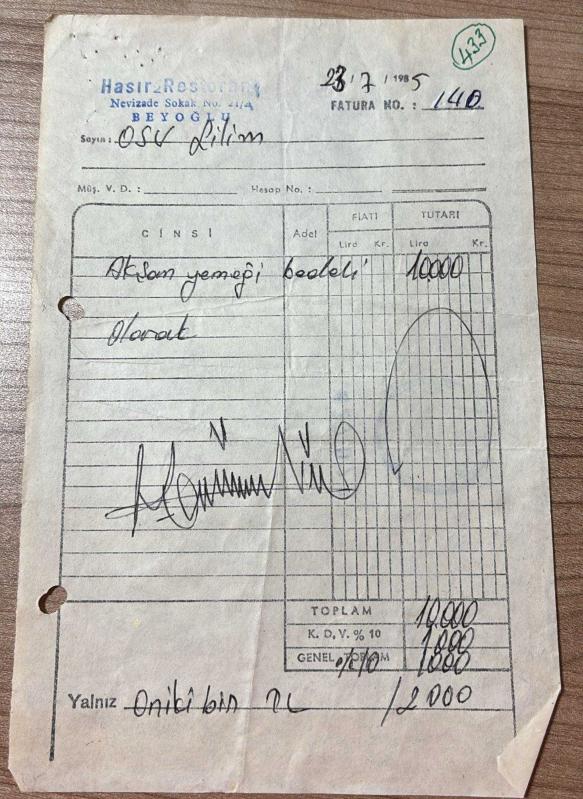 433
Hasır Restorant
23/7/1985
Nevizade Sokak No. 21/4
BEYOĞLU
FATURA NO. : 140
Sayın : OSV
Müş. V. D. : Hesap No. :
CİNSİ Adet FİATI TUTARI
Lira Kr. Lira Kr.
Akşam yemeği bedeli 10.000
Olarak
TOPLAM 10.000
K. D. V. % 10 1000
GENEL TOPLAM 1000
Yalnız Oniki bin TL 12000